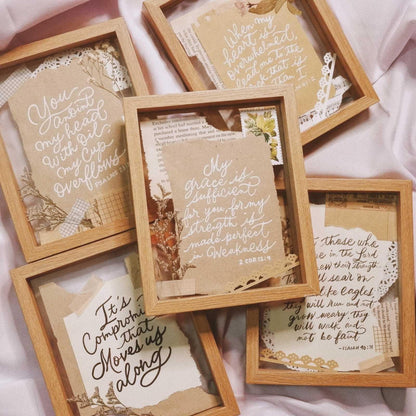 When my
heart is
overwhelmed,
lead me to the
rock that is
than I
You
anoint
my head
with oil,
my cup
overflows
PSALMS
My
grace is
sufficient
for you, for my
strength is
made perfect
in Weakness
2 COR 12:9
It's
Compromi
that
Moves us
along
those who
in the Lord
their strength
soar on
like Eagles
they will run and not
grow weary, they
will walk, and
not be faint
-ISAIAH 40:31